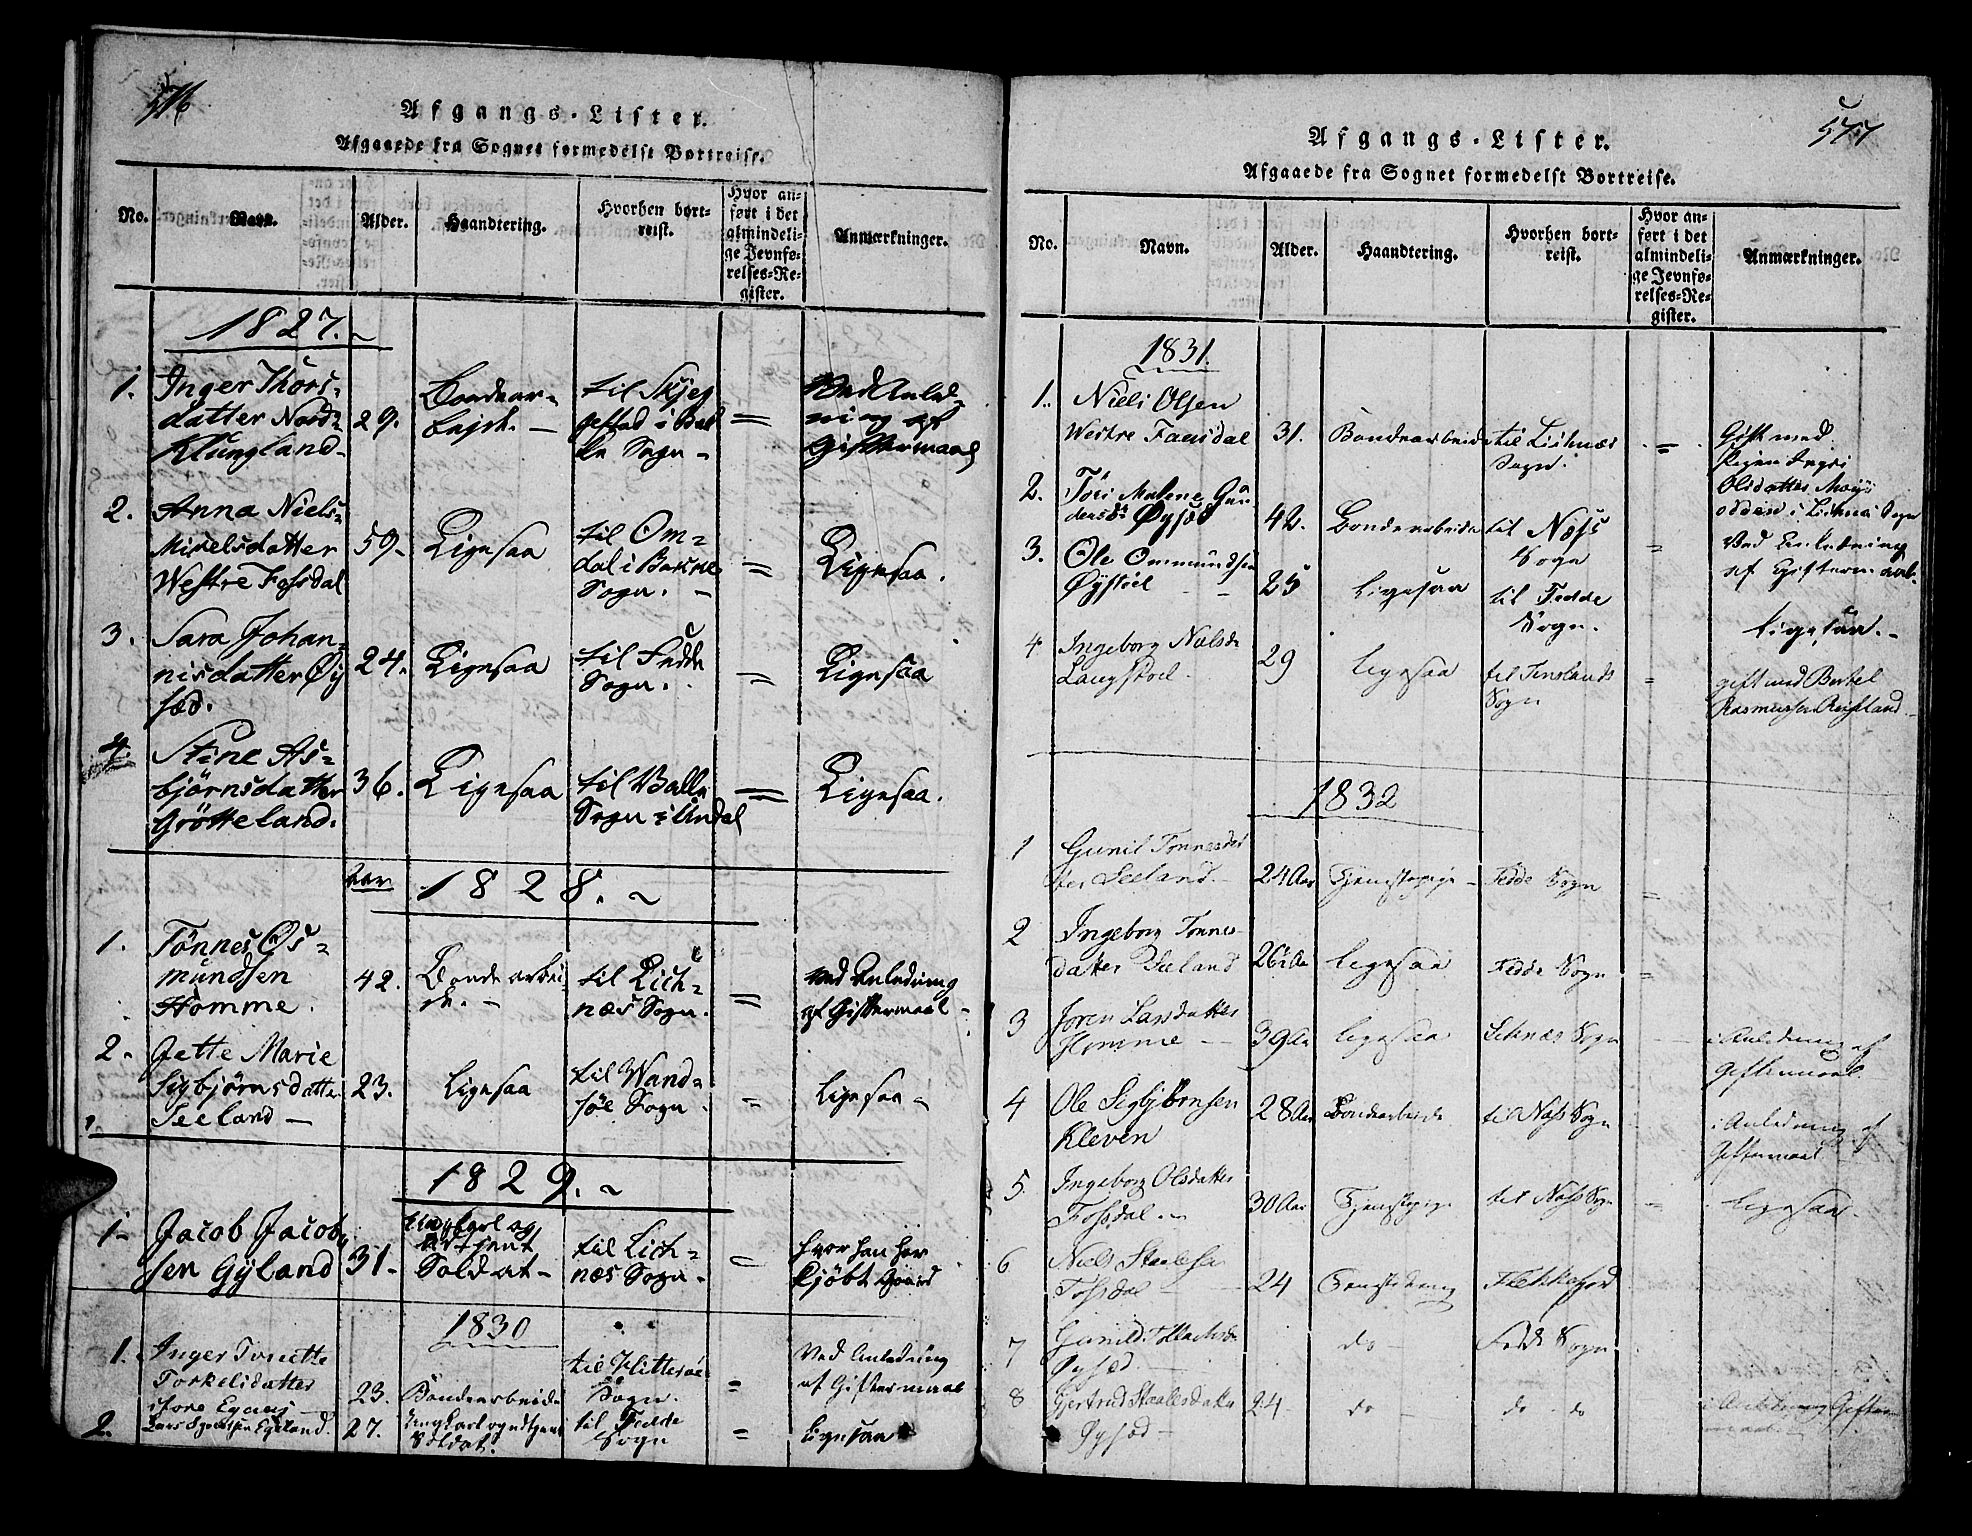 576
Afgangs-Lister.
Afgaaede fra Sognet formedelst Bortreise.
No. Navn. Alder. Haandtering. Hvorhen bort-
reist. Hvor an-
ført i det
almindeli-
ge Jevnfø-
relses-Re-
gister. Anmærkninger.
1827.
1. Inger Thors-
datter Nord-
Klungland 29. Bondear-
beide. til Skjeg
gestad i Bak
ke Sogn = Ved Anled-
ning af
Giftermaal
2. Anna Niels-
Mikelsdatter
Westre Fossdal 59 Ligesaa til Om-
dal i Bakke
Sogn. = Ligesaa.
3. Sara Johan-
nisdatter Øy
sæd. 24. Ligesaa til Fedde
Sogn. = Ligesaa
4. Stine As-
bjørnsdatter
Grøtteland. 36. Ligesaa til Valle
Sogn i Undal = Ligesaa.
Aar 1828.
1. Tønnes Os-
mundsen
Homme. 42. Bonde arbei
de. til Lich-
næs Sogn. = Ved Anledning
af Giftermaal
2. Jette Marie
Sigbjørnsdatte
Seeland 23. Ligesaa til Wand-
søe Sogn. = Ligesaa
1829.
1 Jacob Jacob
sen Gyland 31 Ungkarl og
udtjent
Soldat til Lich-
næs Sogn. = hvor han har
kjøbt Gaard
1830
1. Inger Tonette
Torkelsdatter
store Egaas 23. Bondearbeide til Hitterøe
Sogn. = Ved Anledning
af Giftermaal
2. Lars Egeland. 27. Ungkarl og udtjent
Soldat. til Fedde
Sogn = Ligesaa
577
Afgangs-Lister.
Afgaaede fra Sognet formedelst Bortreise.
No. Navn. Alder. Haandtering. Hvorhen bort-
reist. Hvor an-
ført i det
almindeli-
ge Jevnfø-
relses-Re-
gister. Anmærkninger.
1831.
1. Niels Olsen
Westre Faasdal 31. Bondearbeide til Lichnæs
Sogn. = Gift med
Pigen Ingri
Olsdatter Møys
odden i Lichnæs Sogn
2. Tøri Malene Gun
dersdr Øysæd 42. Bondearbeide til Næss
Sogn = Ved Anledning
af Giftermaal
3. Ole Ommundsen
Øystøel 25 Ligesaa til Fedde
Sogn. Ligesaa.
4 Ingeborg Nielsdr
Langstøel. 29 ligesaa til Finslands
Sogn = gift med Bertel
Rasmussen Reisland
1832
1 Gunil Tønnesdat
ter Seeland. 24 Aar Tjenestepige Fedde Sogn =
2 Ingeborg Tønnes
datter Seeland 26 Aar ligesaa Fedde Sogn =
3 Joren Larsdatter
Homme 39 Aar ligesaa Lichnæs Sogn i Anledning af
Giftermaal.
4 Ole Sigbjørnsen
Kleven 28 Aar Bondearbeide til Næss Sogn i Anledning af
Giftermaal
5. Ingeborg Olsdatter
Fossdal 30 Aar Tjenestepige til Næss Sogn = ligesaa.
6 Niels Staalesen
Fossdal 24 Flekkefjord
7 Gunild
Øysæd do Fedde Sogn
8 Gjertrud Staalesdatter
Øysæd 24 do do do i Anledning Gifter
maal